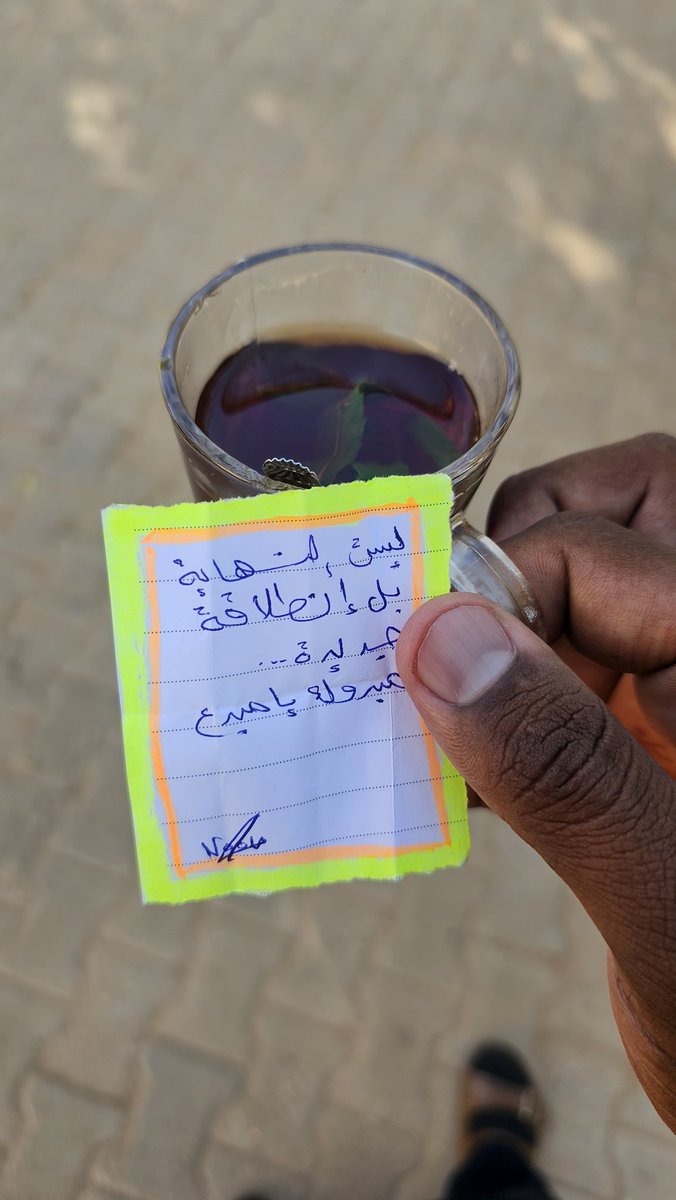 ليست النهاية
بل إنطلاقة
جديدة...
مبروك يا مبدع